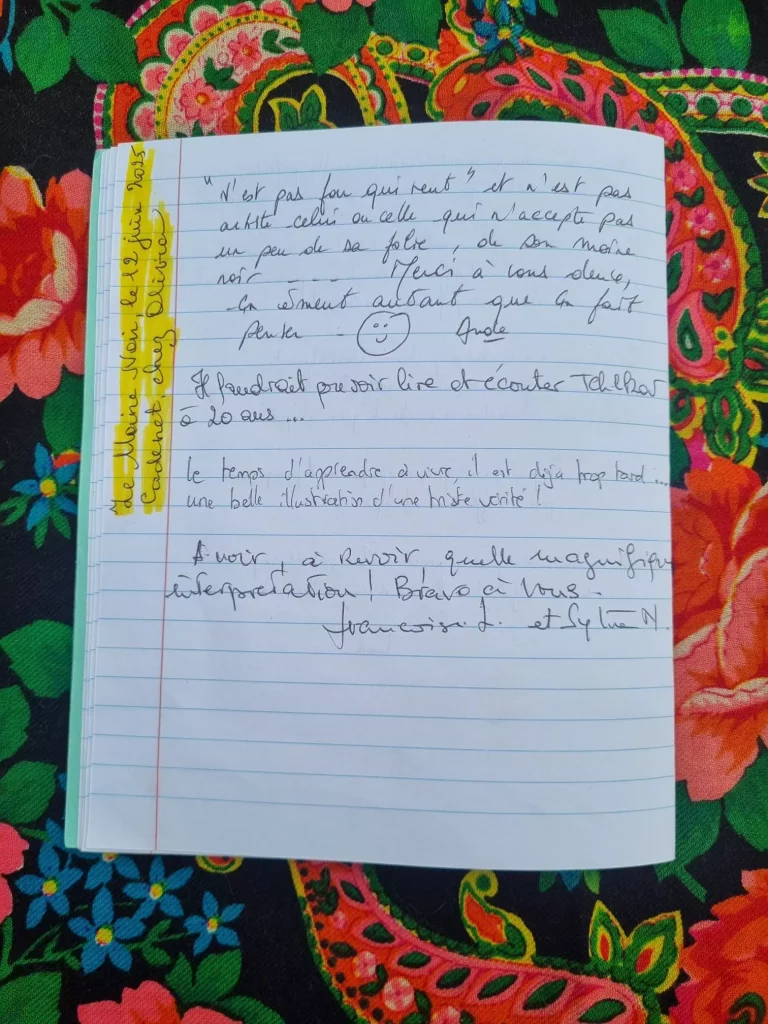 Le Moine Noir, le 12 juin 2025
Cadenet, chez Olivia
"N'est pas fou qui veut" et n'est pas
artiste celui ou celle qui n'accepte pas
un peu de sa folie, de son moine
noir .... Merci à vous deux,
ça émeut autant que ça fait
penser -
Il faudrait pouvoir lire et écouter Tchekov
à 20 ans...
le temps d'apprendre à vivre, il est déjà trop tard...
une belle illustration d'une triste vérité !
A voir, à Revoir, quelle magnifique
interprétation ! Bravo à Vous -
Françoise L. et Sylvie N.